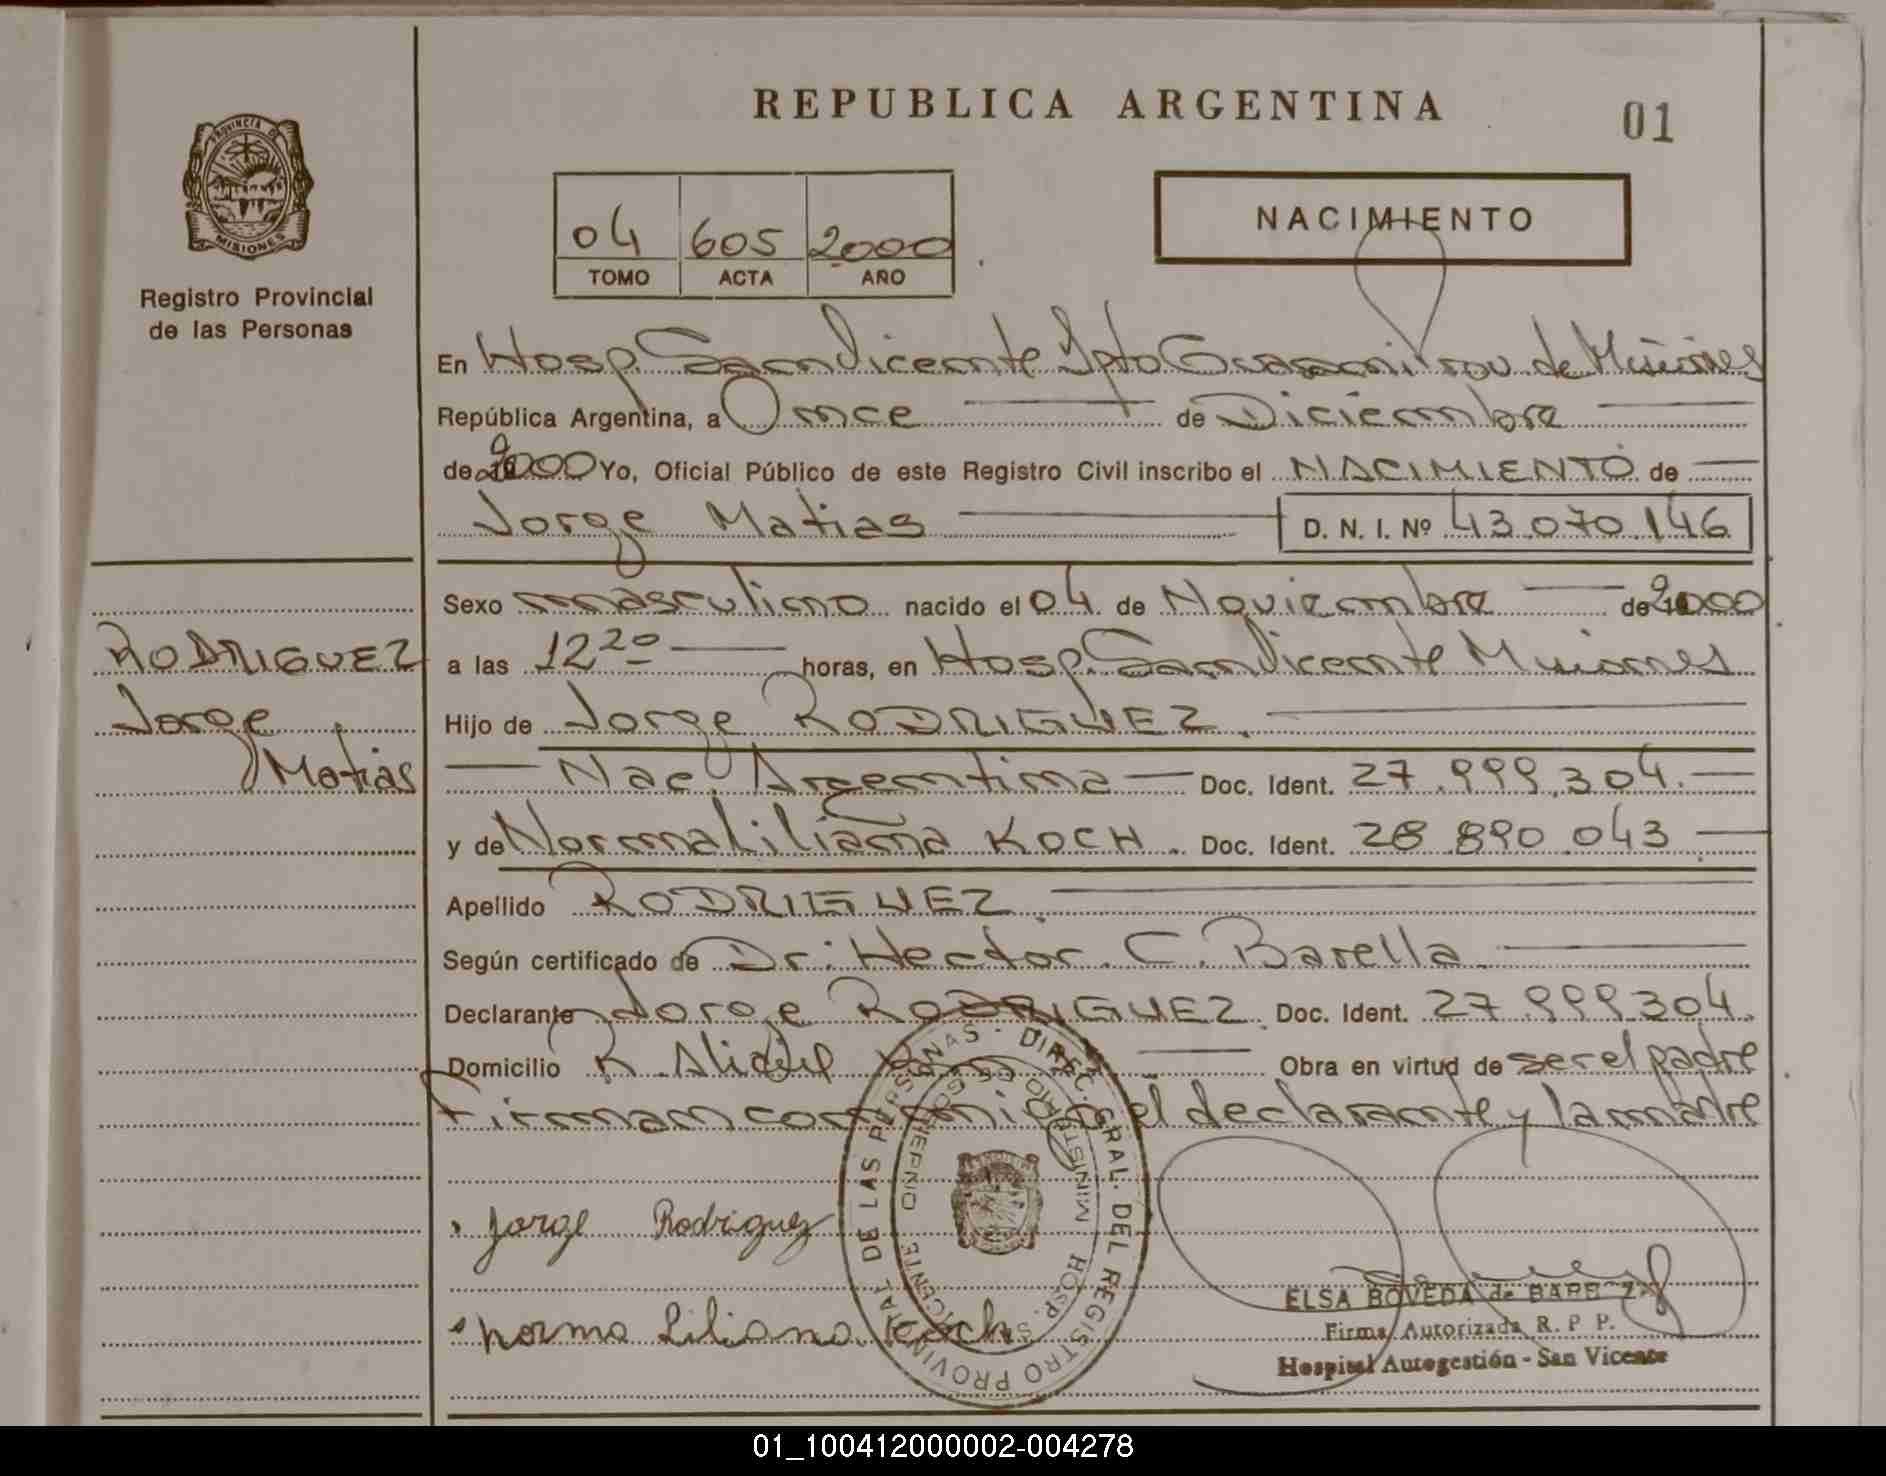 REPUBLICA ARGENTINA
01
PROVINCIA DE MISIONES
Registro Provincial
de las Personas
04 605 2000
TOMO ACTA AÑO
NACIMIENTO
En Hosp. San Vicente Dpto Guarani Prov. de Misiones
República Argentina, a Once de Diciembre
de 2000 Yo, Oficial Público de este Registro Civil inscribo el NACIMIENTO de
Jorge Matias D. N. I. Nº 43.070.146
Sexo masculino nacido el 04 de Noviembre de 2000
RODRIGUEZ
Jorge
Matias
a las 12 20 horas, en Hosp. San Vicente Misiones
Hijo de Jorge RODRIGUEZ.
Nac. Argentina Doc. Ident. 27.999.304.
y de Norma Liliana KOCH. Doc. Ident. 28.890.043
Apellido RODRIGUEZ.
Según certificado de Dr: Hector. C. Barella.
Declarante Jorge RODRIGUEZ. Doc. Ident. 27.999.304.
Domicilio Obra en virtud de ser el padre
Firman conmigo el declarante y la madre
Jorge Rodriguez
Norma Liliana Koch
DIREC. GRAL. DEL REGISTRO PROVINCIAL DE LAS PERSONAS
MINISTERIO DE GOBIERNO
HOSP. S. VICENTE
ELSA BOVEDA de
Firma Autorizada R. P. P.
Hospital Autogestión - San Vicente
01_100412000002-004278